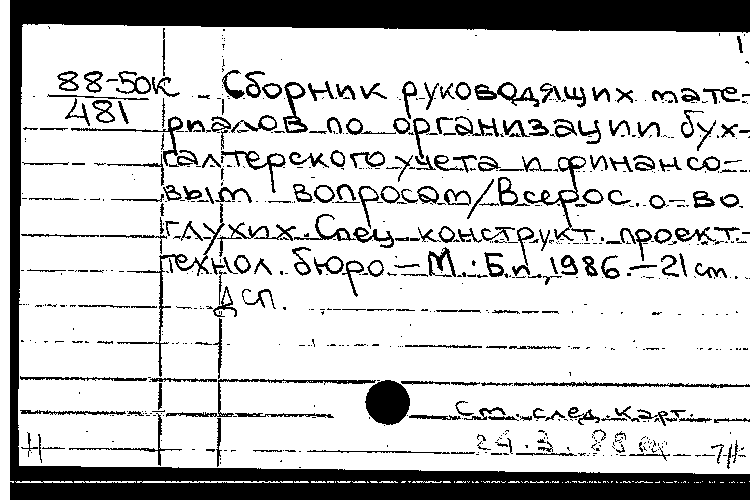 1
88-50к Сборник руководящих мате-
481
риалов по организации бух-
галтерского учета и финансо-
вым вопросам/Всерос. о-во
глухих. Спец конструкт. проект.-
технол. бюро.-М.: Б.и., 1986.-21 ст.
ДСП.
Ст. след. карт.
24.3.88
Н